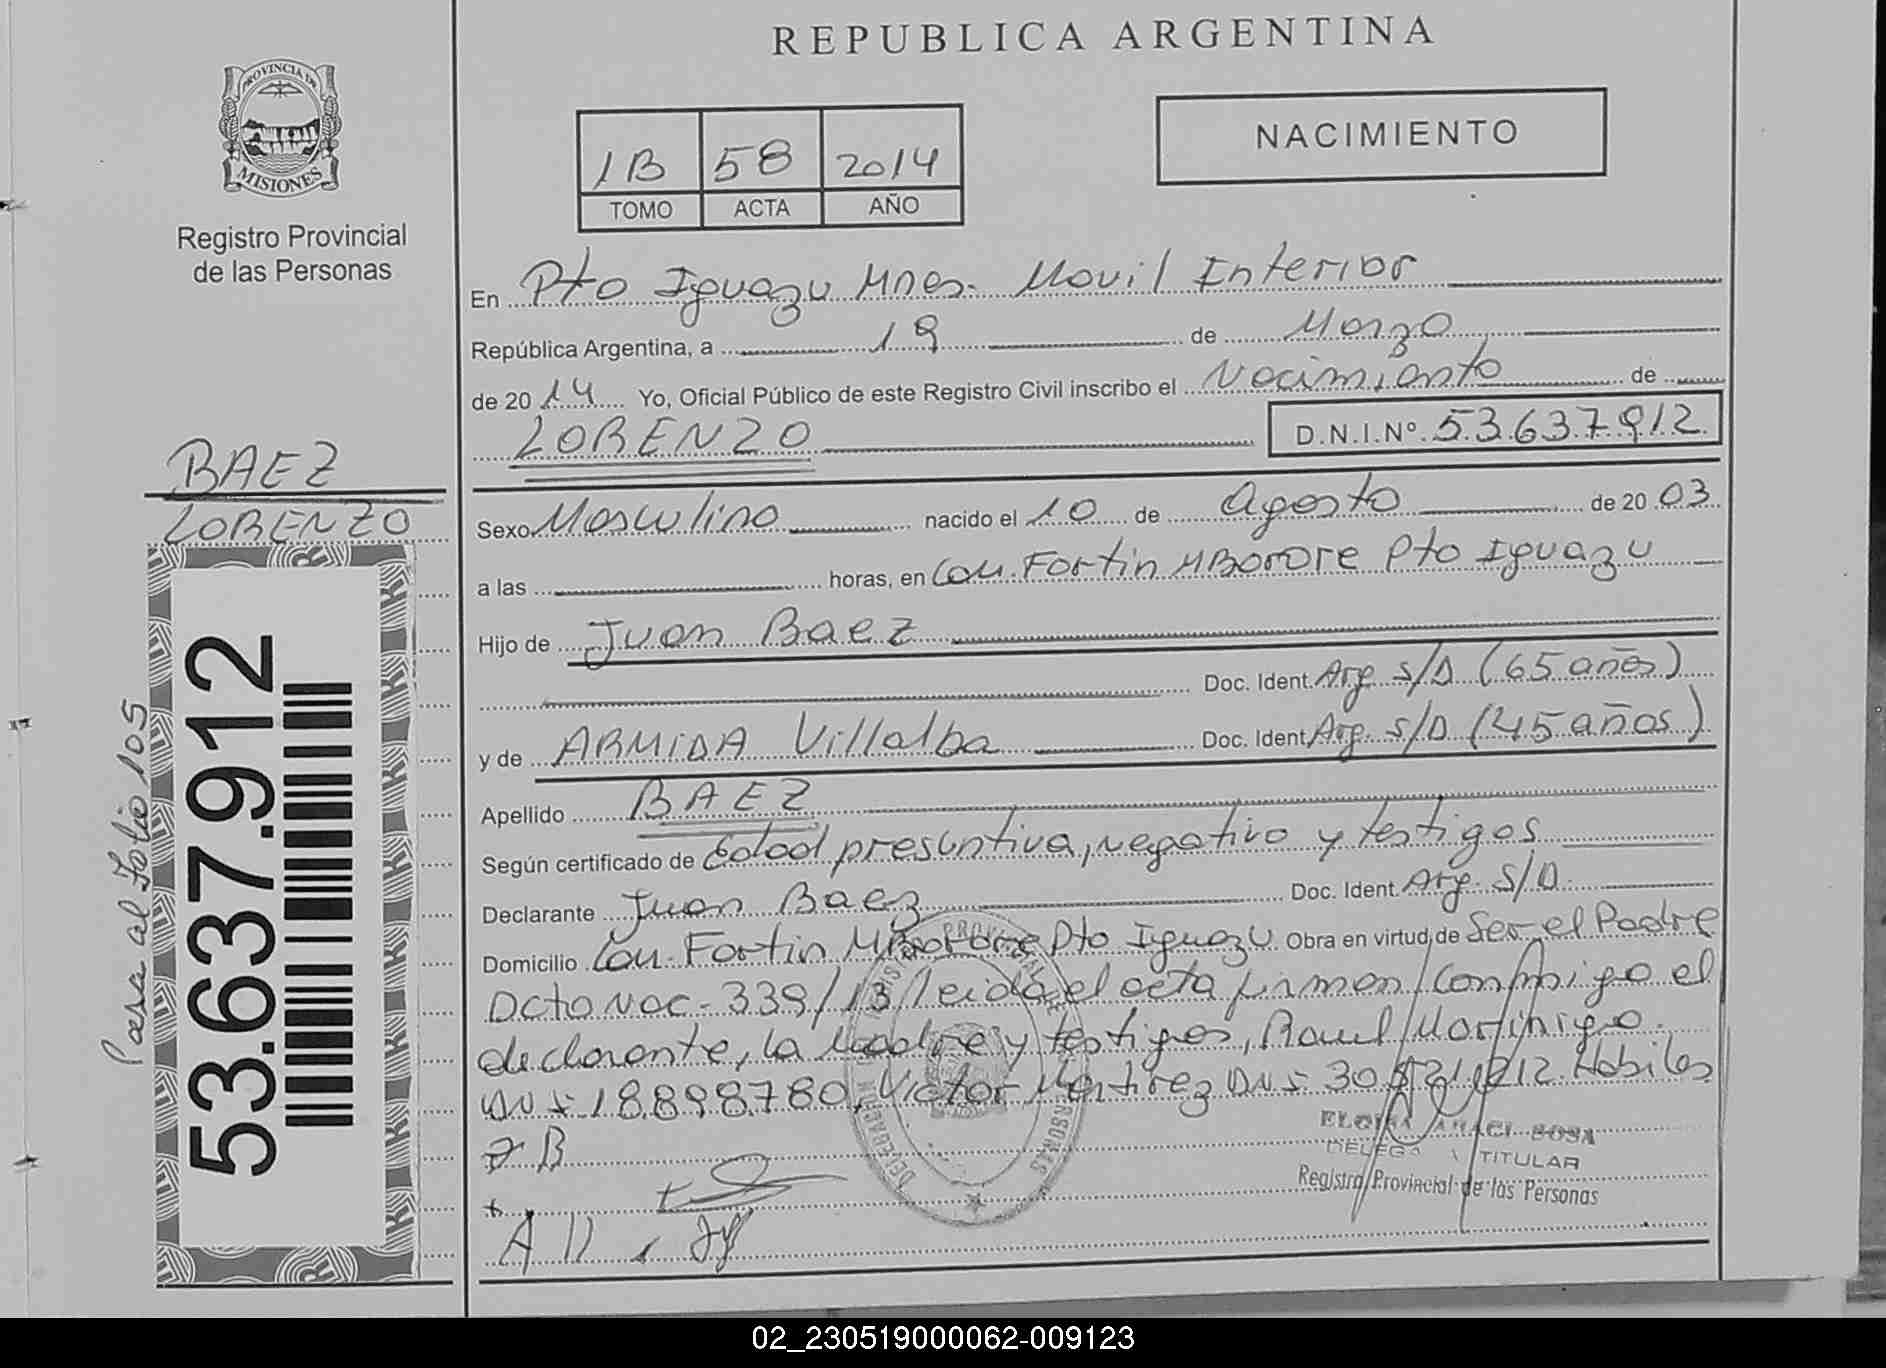 REPUBLICA ARGENTINA
PROVINCIA DE
MISIONES
Registro Provincial
de las Personas
1B 58 2014
TOMO ACTA AÑO
NACIMIENTO
En Pto Iguazu Mnes. Movil Interior
República Argentina, a 19 de Marzo
de 2014 Yo, Oficial Público de este Registro Civil inscribo el Nacimiento de
LORENZO D.N.I.Nº 53.637.912
BAEZ
LORENZO
Sexo Masculino nacido el 10 de Agosto de 2003
a las horas, en Com. Fortin MBororе Pto Iguazu
Hijo de Juan Baez
Doc. Ident. Arg. S/D (65 años)
y de ARMIDA Villalba Doc. Ident. Arg. S/D (45 años)
Apellido BAEZ
Según certificado de Edad presuntiva, negativo y testigos
Declarante Juan Baez Doc. Ident. Arg. S/D.
Domicilio Com. Fortin MBorore Pto Iguazu Obra en virtud de Ser el Padre
Dcto Nac. 339/13/ leida el acta firman conmigo el
declarante, la Madre y testigos, Raul Martinigo
DNI 18.898.780, Victor DNI Habiles
J B
A V
ELOISA ARACI SOSA
DELEGADA TITULAR
Registro Provincial de las Personas
53.637.912
Pasa al Folio 105
02_230519000062-009123